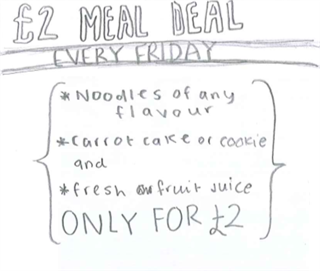 £2 MEAL DEAL
EVERY FRIDAY
*Noodles of any
flavour
*Carrot cake or cookie
and
*fresh fruit juice
ONLY FOR £2